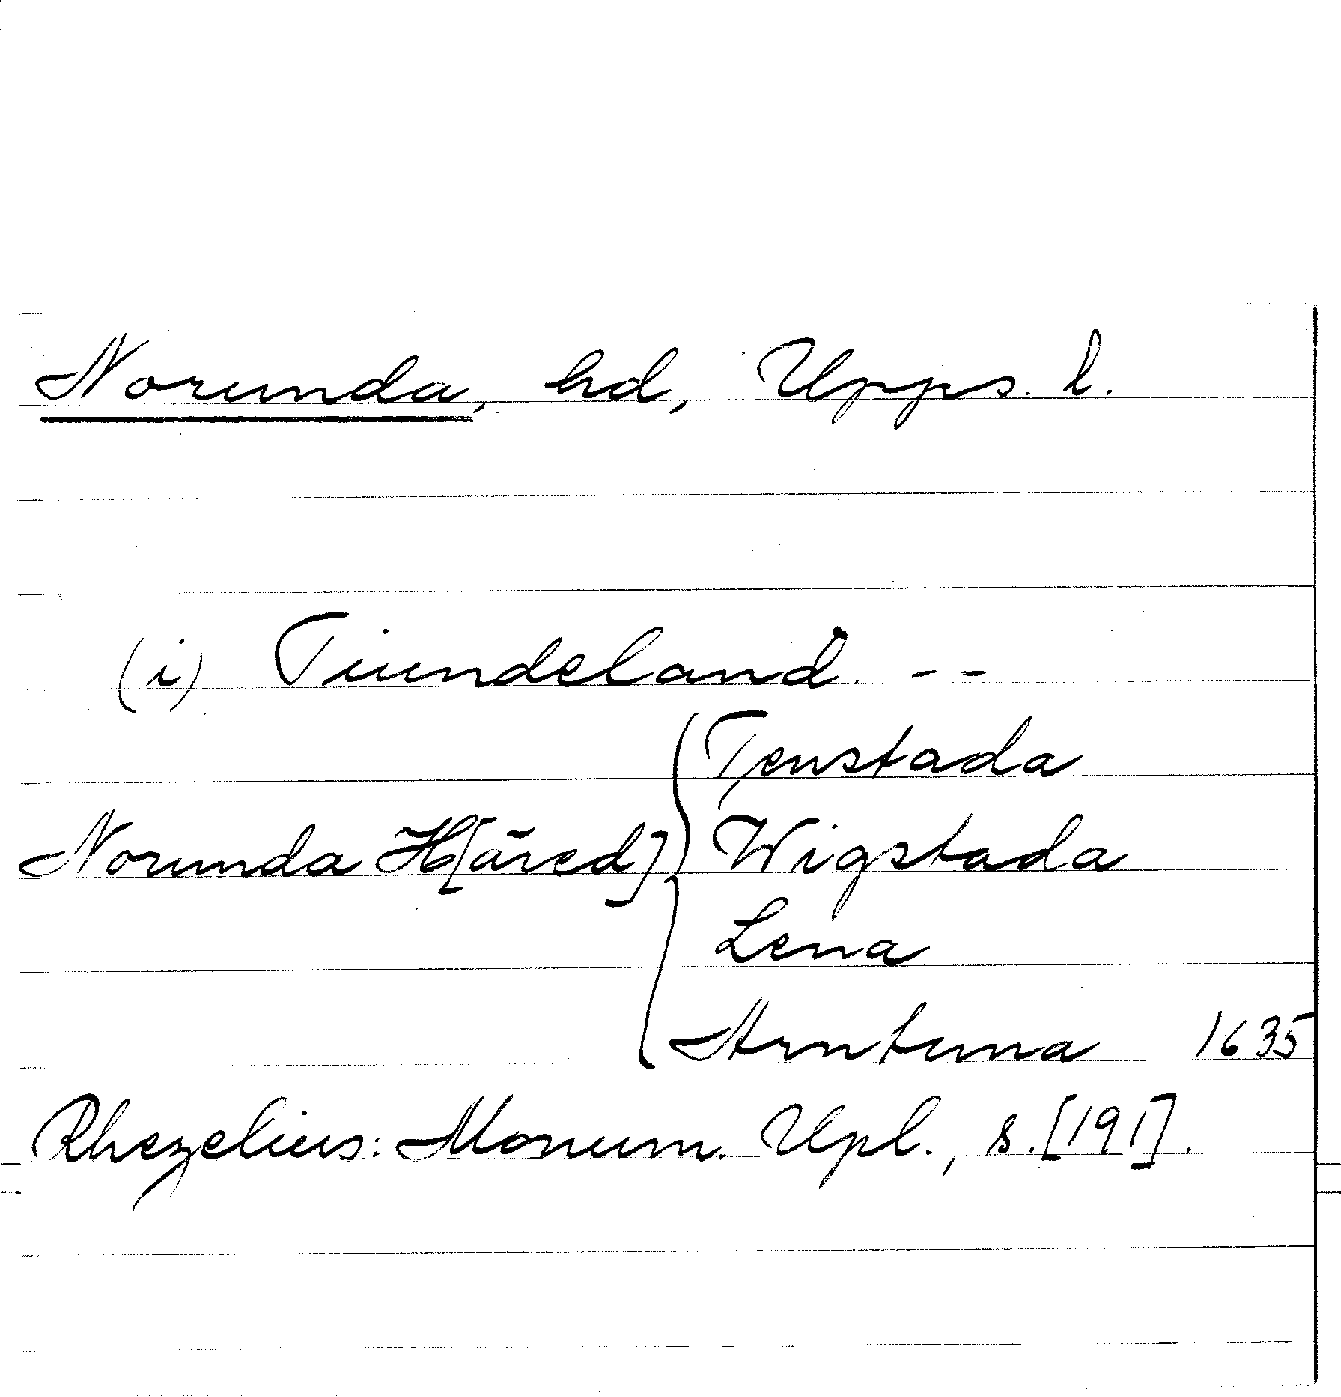 Norunda, hd, Upps. l.
(i) Tiundeland. --
Tenstada
Norunda H[äred] Wigstada
Lena
Arntuna 1635
Rhezelius: Monum. Upl., s. [191].